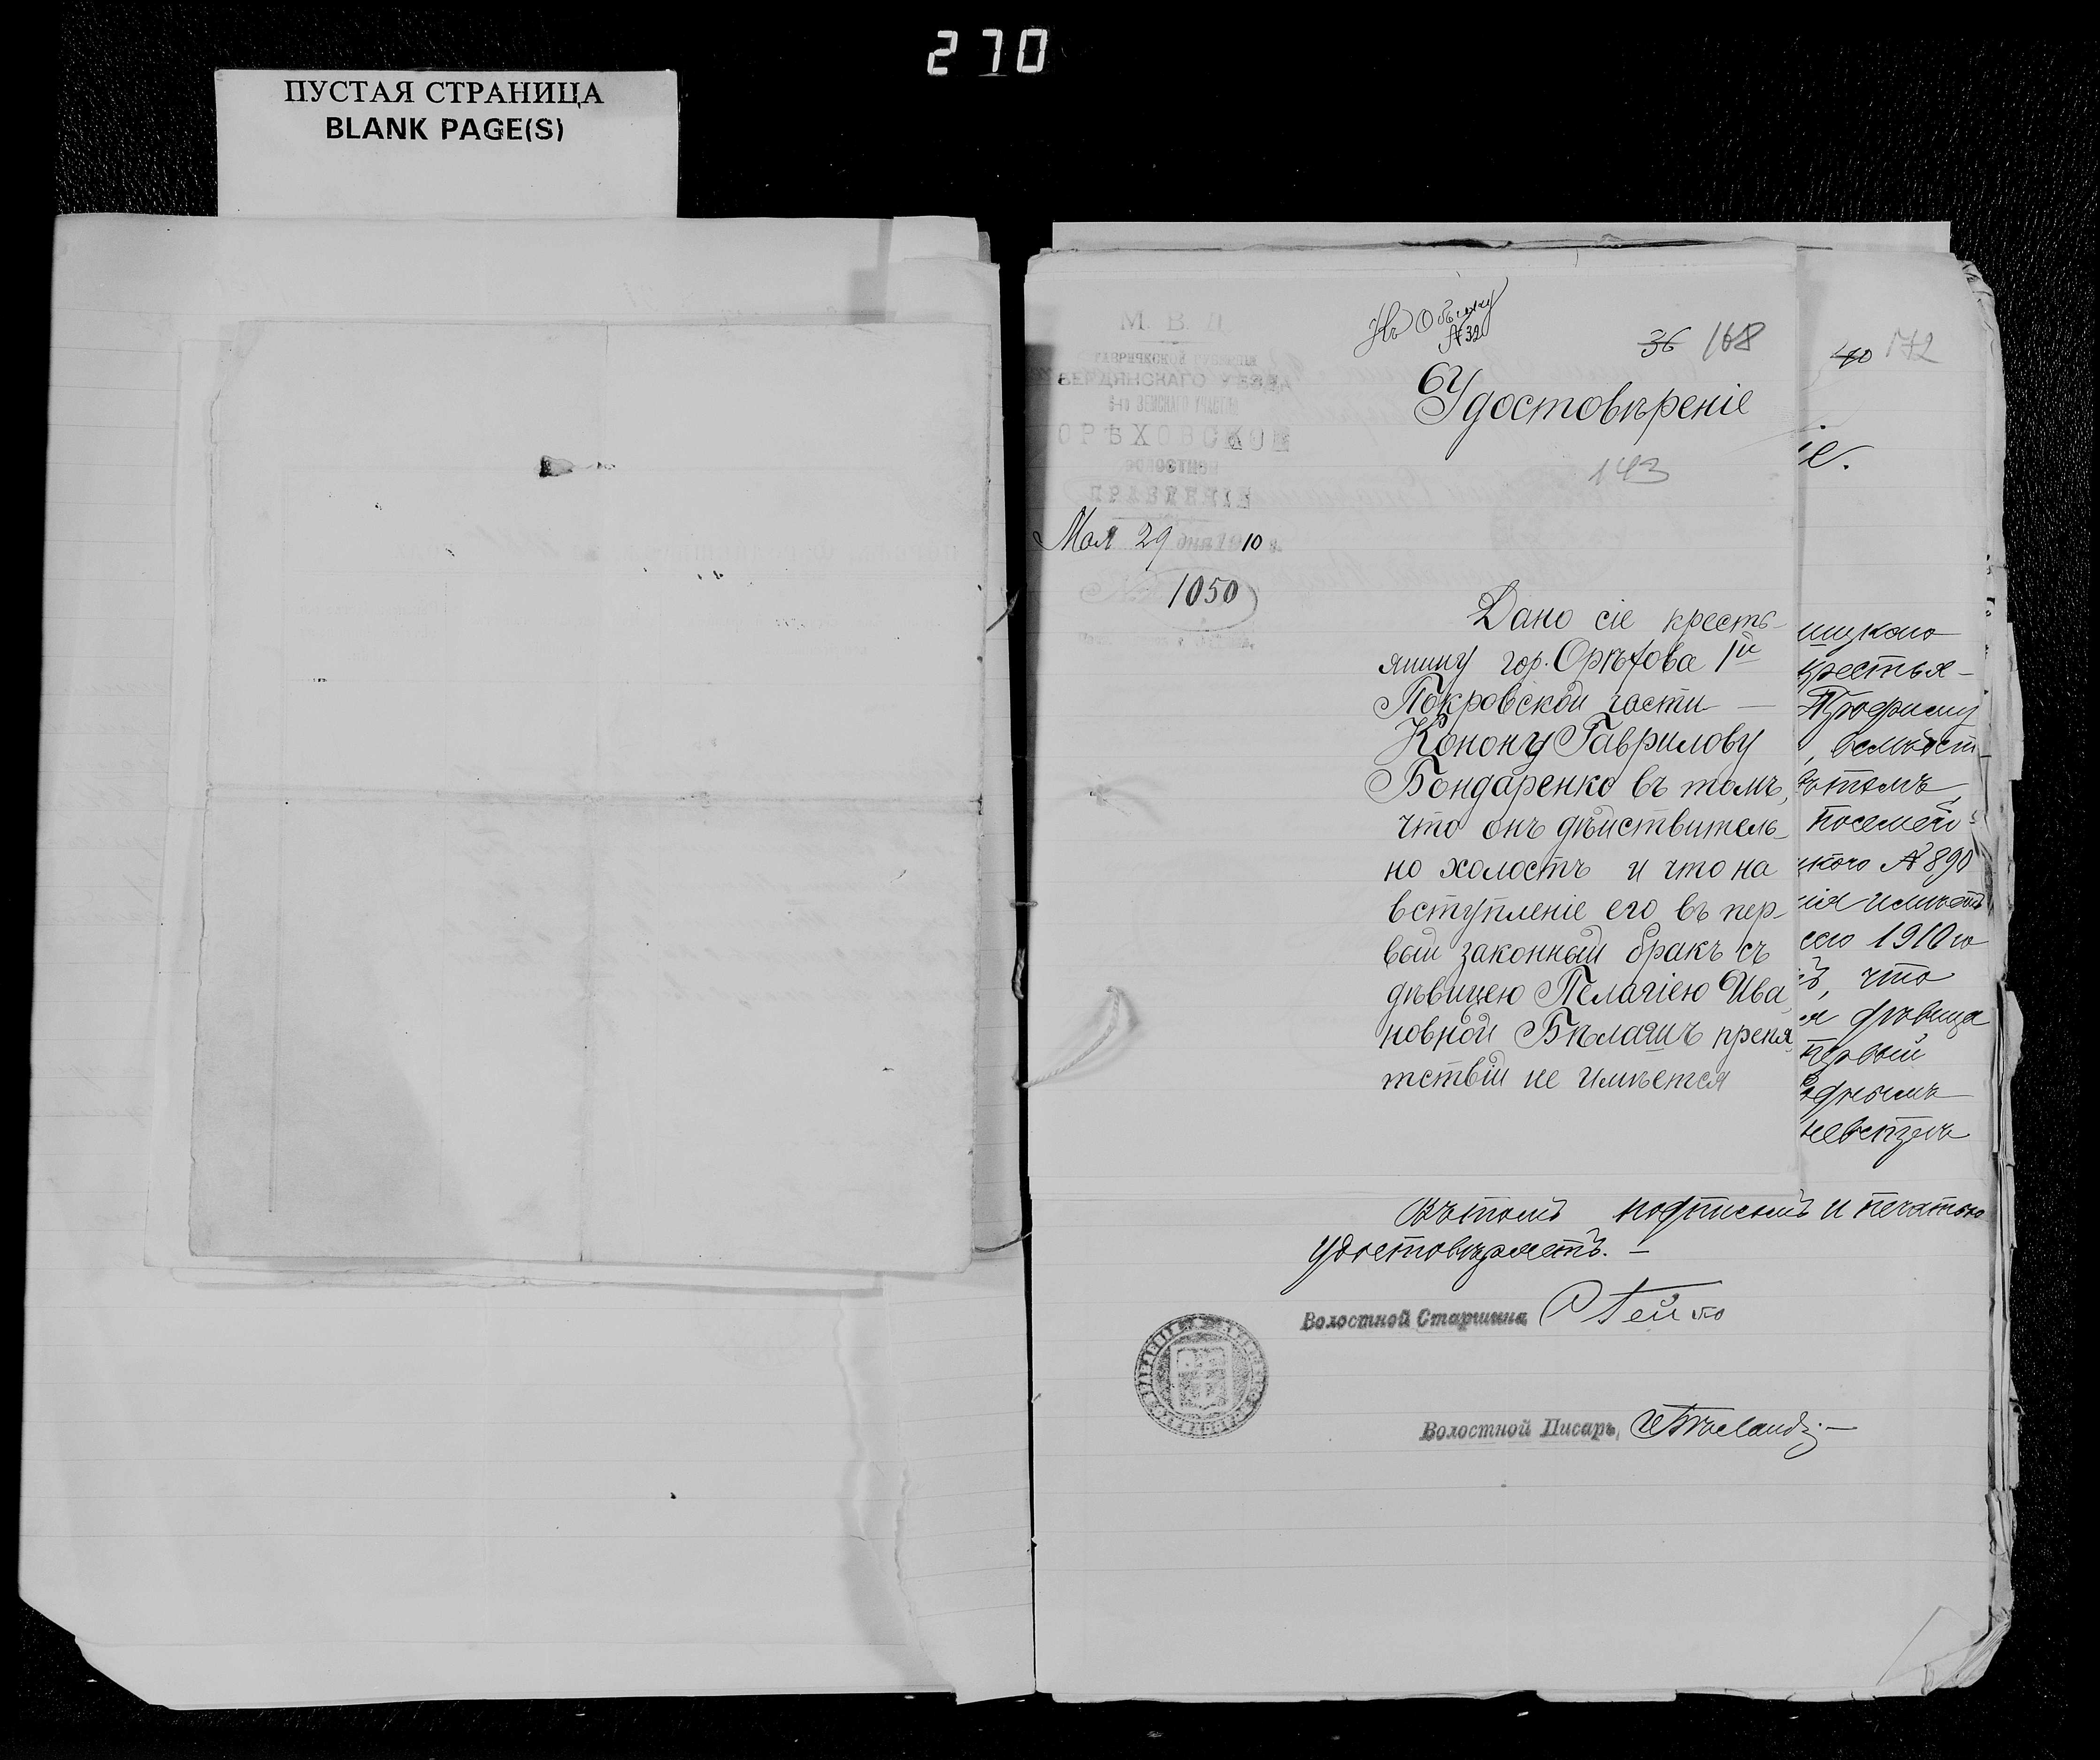 270
ПУСТАЯ СТРАНИЦА
BLANK PAGE(S)
Къ Обыску
№ 32
36 168
М. В. Д.
ТАВРИЧЕСКОЙ ГУБЕРНІИ
БЕРДЯНСКАГО УѢЗДА
6-го ЗЕМСКАГО УЧАСТКА
ОРѢХОВСКОЕ
ВОЛОСТНОЕ
ПРАВЛЕНІЕ
Мая 29 дня 1910 г.
№ 1050
Удостовѣреніе
143
Дано сіе кресть-
янину гор. Орѣхова 1й
Покровской части —
Конону Гаврилову
Бондаренко въ томъ,
что онъ дѣйствитель-
но холостъ и что на
вступленіе его въ пер-
вый законный бракъ съ
дѣвицею Пелагіею Ива
новной Бѣлашъ препя
тствій не имѣется
40 172
іе.
крестья-
Трофиму
посемей
№ 890
1910 го
ъ, что
дѣвица
первый
Въ томъ подписомъ и печатью
удостовѣряетъ. —
Волостной Старшина
Волостной Писарь